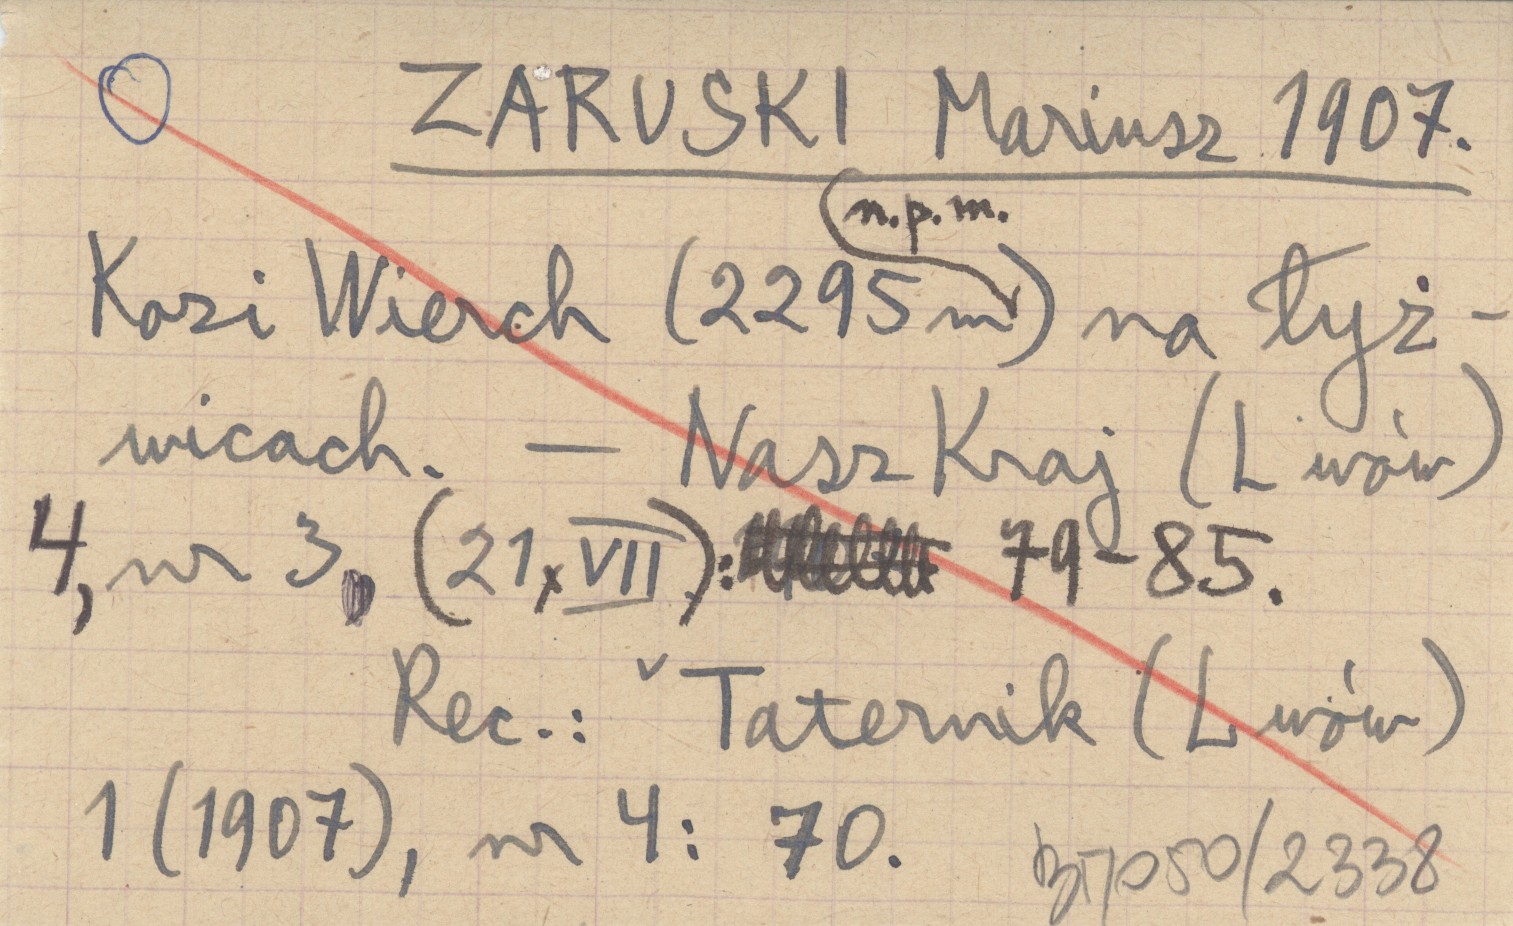 ZARUSKI Mariusz 1907.
n.p.m.
Kozi Wierch (2295 m) na łyż-
wicach. — Nasz Kraj (Lwów)
4, nr 3, (21, VII): 79-85.
Rec.: Taternik (Lwów)
1 (1907), nr 4: 70.
050/2338